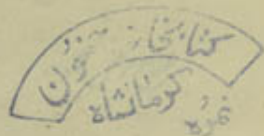 کتابخانه
کرمانشاه
نمره